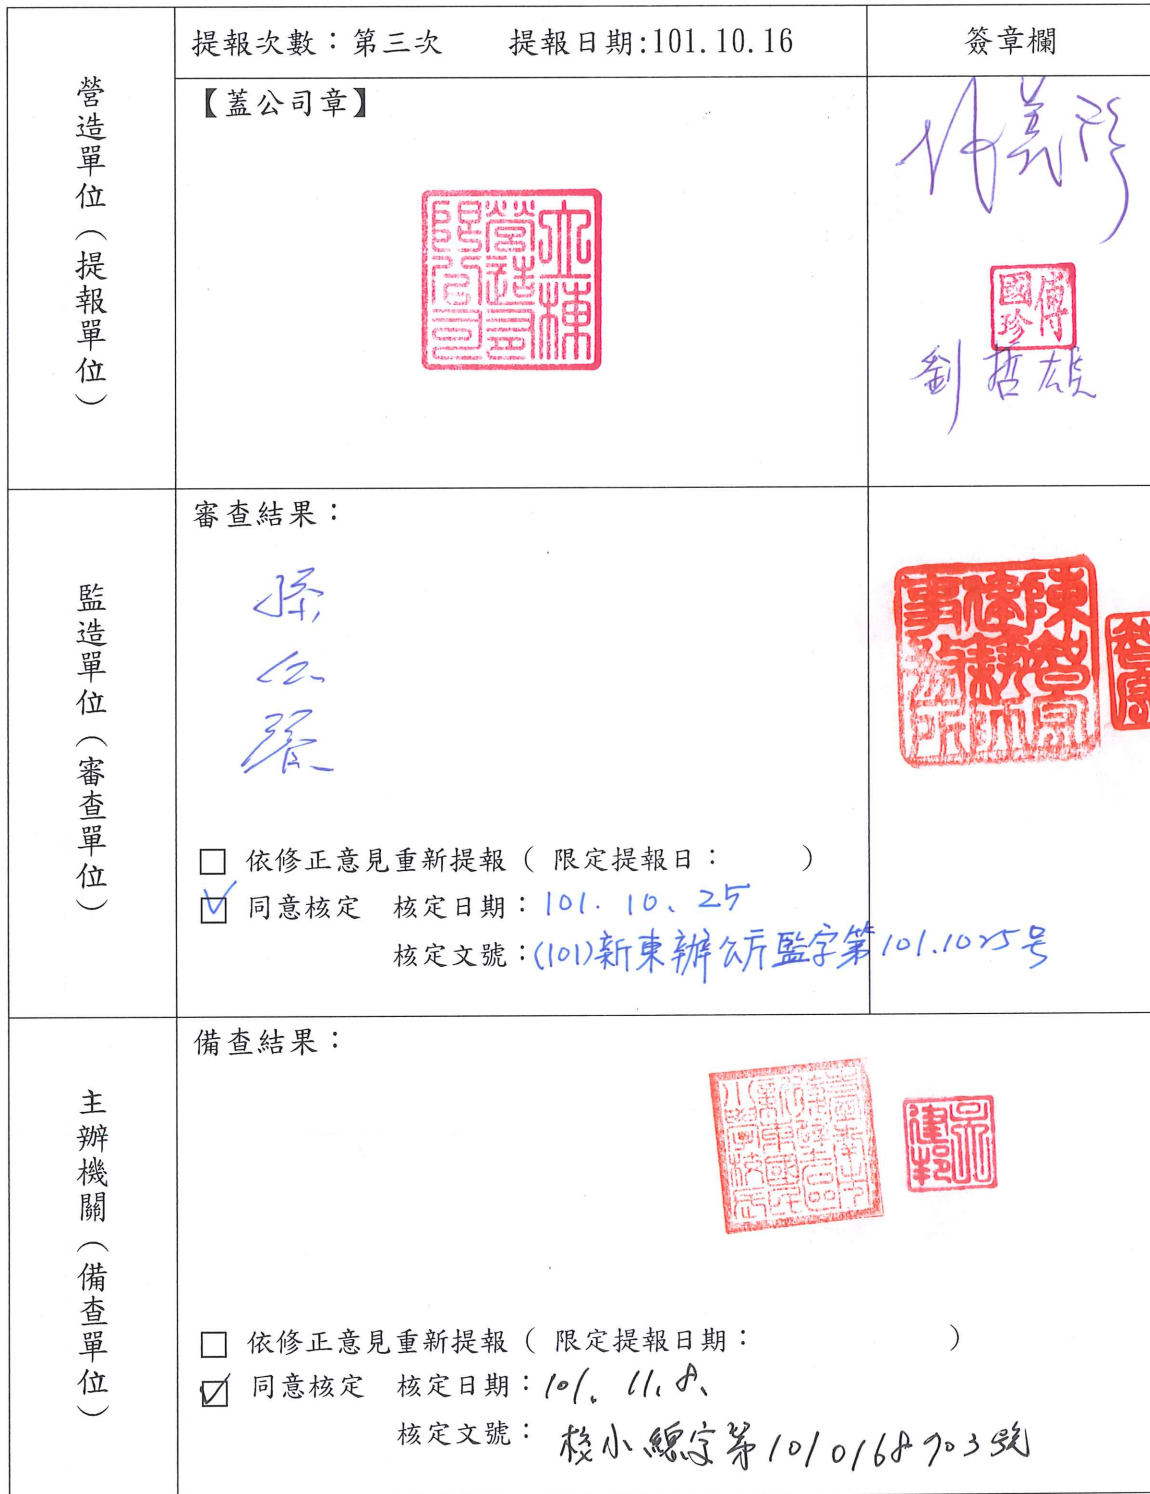 提報次數：第三次 提報日期:101.10.16
簽章欄
營造單位（提報單位）
【蓋公司章】
營造有
限公司
傅
國珍
劉哲雄
監造單位（審查單位）
審查結果：
陳
建築師
事務所
□ 依修正意見重新提報（ 限定提報日： ）
☑ 同意核定 核定日期：101. 10、25
核定文號：(101)新東辦公所監字第101.1025号
主辦機關（備查單位）
備查結果：
吳
建邦
□ 依修正意見重新提報（ 限定提報日期： ）
☑ 同意核定 核定日期：101. 11. 8、
核定文號： 小總字第1010168903號